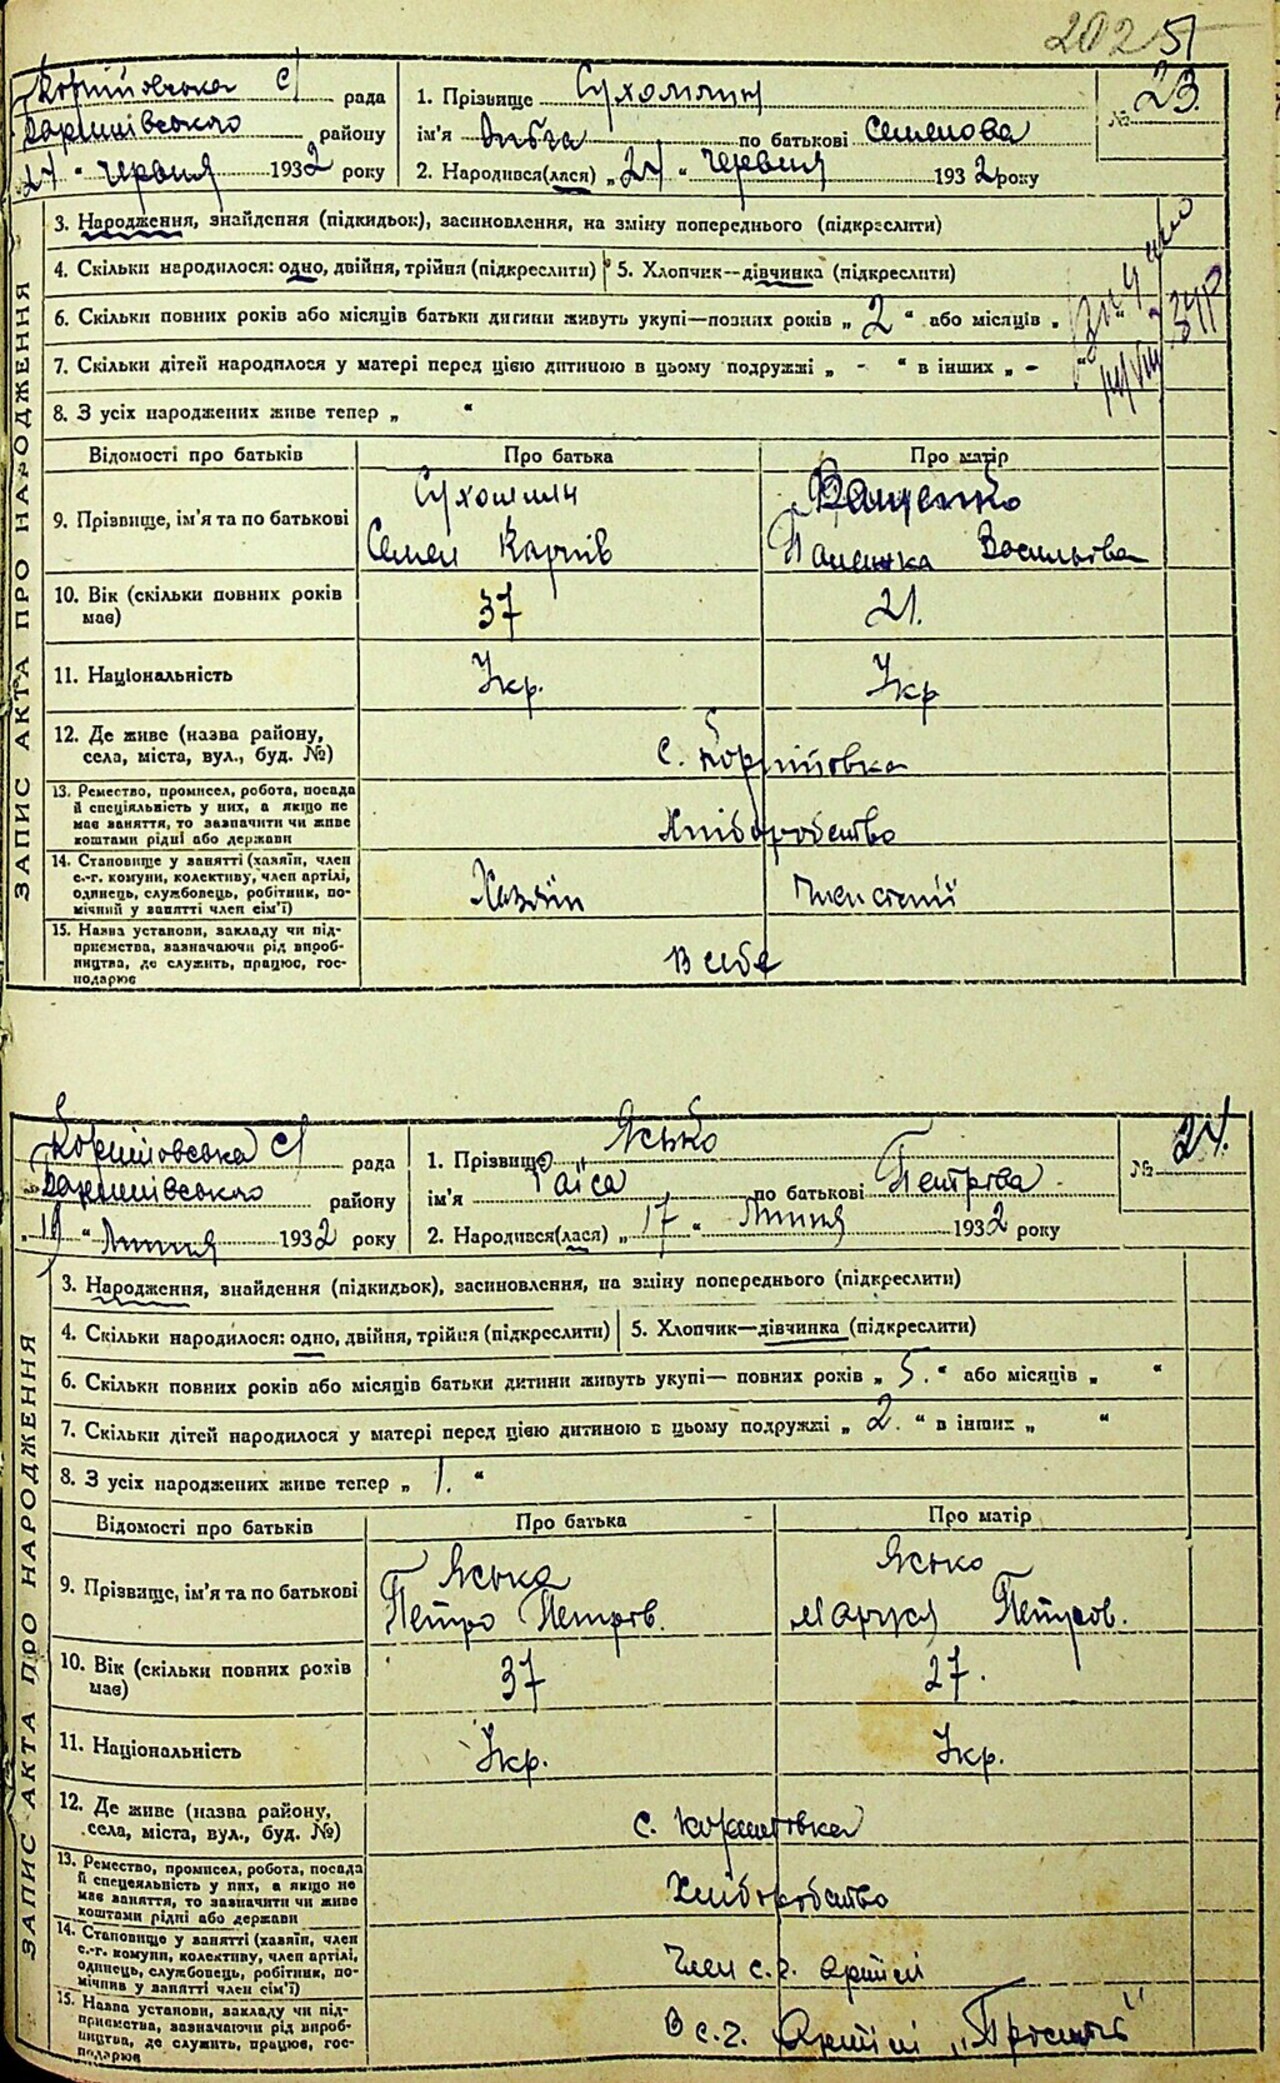 202 51
рада
району
27 " Червня 1932 року
1. Прізвище Сухомлин
ім'я по батькові Семенова
2. Народився(лася) „27" Червня 1932 року
№ 23.
ЗАПИС АКТА ПРО НАРОДЖЕННЯ
3. Народження, знайдення (підкидьок), засиновлення, на зміну попереднього (підкреслити)
4. Скільки народилося: одно, двійня, трійня (підкреслити) 5. Хлопчик—дівчинка (підкреслити)
6. Скільки повних років або місяців батьки дитини живуть укупі—повних років „ 2 " або місяців „
7. Скільки дітей народилося у матері перед цією дитиною в цьому подружжі „ - " в інших „ -
8. З усіх народжених живе тепер „ "
Відомості про батьків Про батька Про матір
9. Прізвище, ім'я та по батькові
Сухомлин
Семен Карпів
Ващенко
Васильова
10. Вік (скільки повних років
має)
37 21.
11. Національність Укр. Укр
12. Де живе (назва району,
села, міста, вул., буд. №)
13. Ремество, промисел, робота, посада
й спеціяльність у них, а якщо не
має заняття, то зазначити чи живе
коштами рідні або держави
Хліборобство
14. Становище у занятті (хазяїн, член
с.-г. комуни, колективу, член артілі,
одинець, службовець, робітник, по-
мічний у занятті член сім'ї)
Хазяїн
15. Назва установи, закладу чи під-
приємства, зазначаючи рід вироб-
ництва, де служить, працює, гос-
подарює
В себе
рада
району
19 " Липня 1932 року
1. Прізвище Ясько
ім'я Раїса по батькові Петрова
2. Народився(лася) „ 17 " Липня 1932 року
№ 24.
ЗАПИС АКТА ПРО НАРОДЖЕННЯ
3. Народження, знайдення (підкидьок), засиновлення, на зміну попереднього (підкреслити)
4. Скільки народилося: одно, двійня, трійня (підкреслити) 5. Хлопчик—дівчинка (підкреслити)
6. Скільки повних років або місяців батьки дитини живуть укупі— повних років „ 5. " або місяців „ "
7. Скільки дітей народилося у матері перед цією дитиною в цьому подружжі „ 2. " в інших „ "
8. З усіх народжених живе тепер „ 1. "
Відомості про батьків Про батька Про матір
9. Прізвище, ім'я та по батькові
Яська
Петро Петров.
Ясько
Петров.
10. Вік (скільки повних років
має)
37 27.
11. Національність Укр. Укр.
12. Де живе (назва району,
села, міста, вул., буд. №)
13. Ремество, промисел, робота, посада
й спецеяльність у них, а якщо не
має заняття, то зазначити чи живе
коштами рідні або держави
Хліборобство
14. Становище у занятті (хазяїн, член
с.-г. комуни, колективу, член артілі,
одинець, службовець, робітник, по-
мічник у занятті член сім'ї)
Член с.г. артілі
15. Назва установи, закладу чи під-
приємства, зазначаючи рід вироб-
ництва, де служить, працює, гос-
подарює
В с.г. Артілі